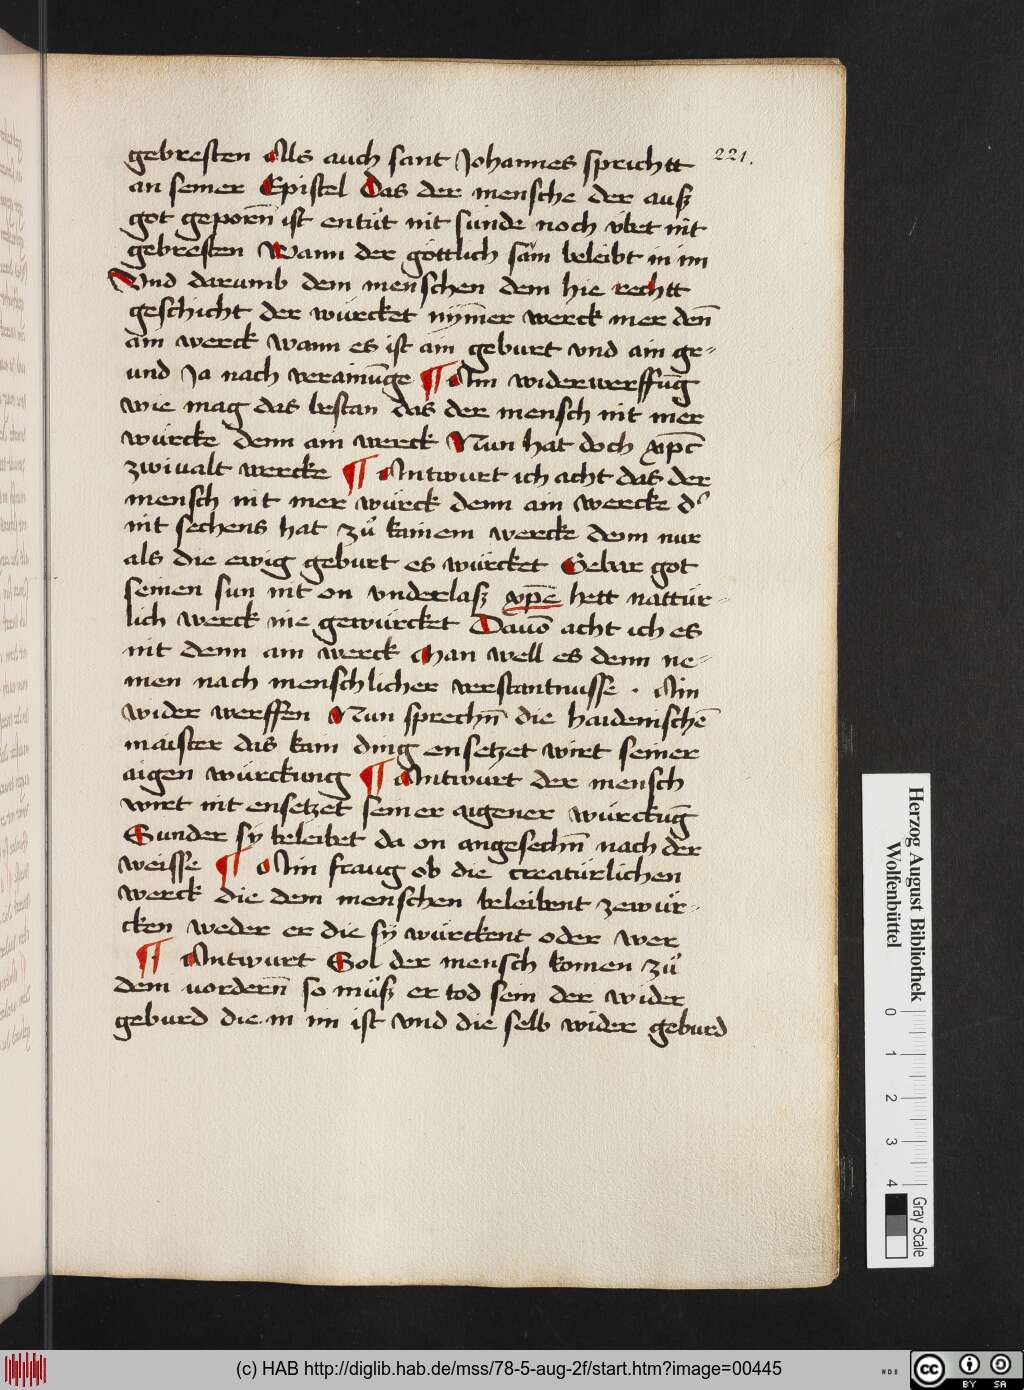 221.
gebresten Als auch sant Johannes sprichtt
an seiner Epistel Das der mensche der ausz
got geporn̄ ist entůt nit sünde noch v̈bet nit
gebresten Wann der göttlich sam beleibt in im
Vnd darumb dem menschen dem hie rechtt
geschicht der würcket nym̄er werck mer den̄
ain werck wann es ist ain geburt vnd ain ge-
und Ja nach verainūge ¶ Ain widerwerffūg
wie mag das bestan das der mensch nit mer
würcke denn ain werck Nun hat doch xp̄c
zwiualt wercke ¶ Antwurt ich acht das der
mensch nit mer würck denn ain wercke d'
nit sechens hat zů kainem wercke denn nur
als die ewig geburt es würcket Gebar got
seinen sun nit on vnderlasz xp̄e hett nattür-
lich werck nie gewürcket Dauō acht ich es
nit denn ain werck Man well es denn ne-
men nach menschlicher verstantnusse . Ain
wider werffen Nun sprechn̄ die haidenischē
maister das kain ding ensetzet wirt seiner
aigen würckung ¶ Antwurt der mensch
wirt nit ensetzet seiner aigener würckūg
Sunder sy beleibet da on angesechn̄ nach der
weisse ¶ Ain fraug ob die creatürlichen
werck die dem menschen beleibent zewür-
cken weder er die sy würckent oder wer
¶ Antwurt Sol der mensch komen zů
dem vordern̄ so můsz er tod sein der wider
geburd die in im ist vnd die selb wider geburd
Herzog August Bibliothek
Wolfenbüttel
0 1 2 3 4
Gray Scale
(c) HAB http://diglib.hab.de/mss/78-5-aug-2f/start.htm?image=00445
HAB
cc BY SA